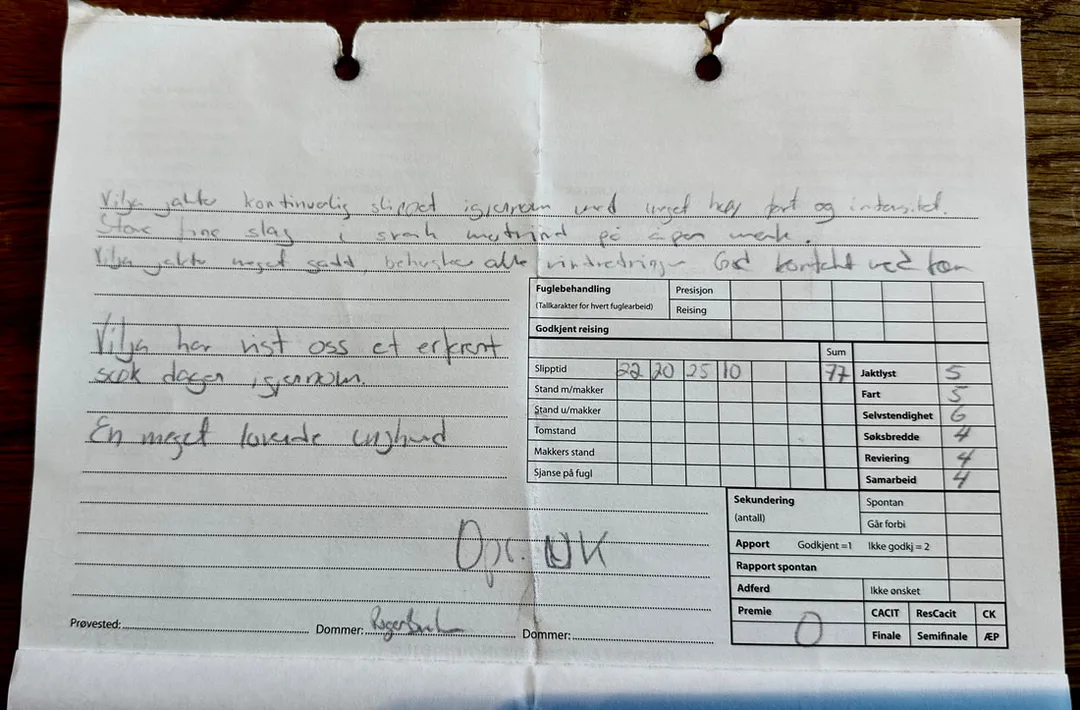 Vilja jakter kontinuelig slippet igjennom med meget høy fart og intensitet.
Store fine slag i svak motvind på åpen mark.
Vilja jakter meget godt, behersker alle vindretninger God kontakt ved fører
Vilja har vist oss et
søk dagen igjennom.
En meget lovende unghund
Fuglebehandling
(Tallkarakter for hvert fuglearbeid)
Presisjon
Reising
Godkjent reising
Sum
Slipptid 22 20 25 10 77
Stand m/makker
Stand u/makker
Tomstand
Makkers stand
Sjanse på fugl
Jaktlyst 5
Fart 5
Selvstendighet 6
Søksbredde 4
Reviering 4
Samarbeid 4
Sekundering
(antall)
Spontan
Går forbi
Apport Godkjent =1 Ikke godkj = 2
Rapport spontan
Adferd Ikke ønsket
Premie 0
CACIT ResCacit CK
Finale Semifinale ÆP
UK
Prøvested: Dommer: Roger Dommer: